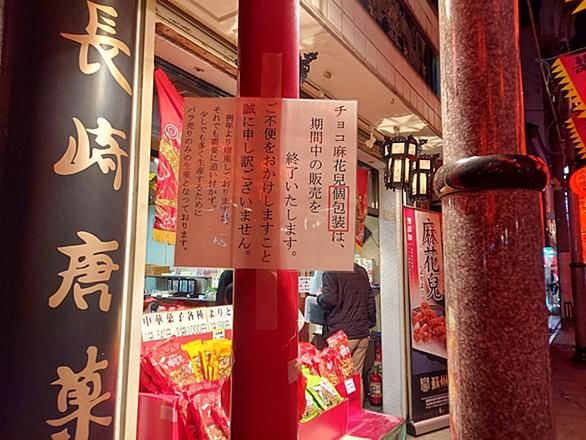 長崎唐菓
チョコ麻花兒個包装は、
期間中の販売を
終了いたします。
ご不便をおかけしますこと
誠に申し訳ございません。
例年より増産しておりますが、
それでも需要に追い付かず、
少しでも多く生産するために
バラ売りのみの生産となっております。
中華菓子各種
1袋540円 2袋1000円
よりど
麻花兒
蘇州